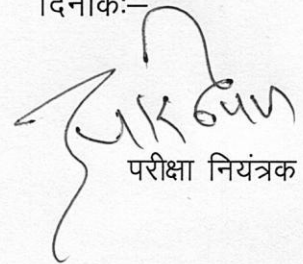 दिनांकः–
परीक्षा नियंत्रक